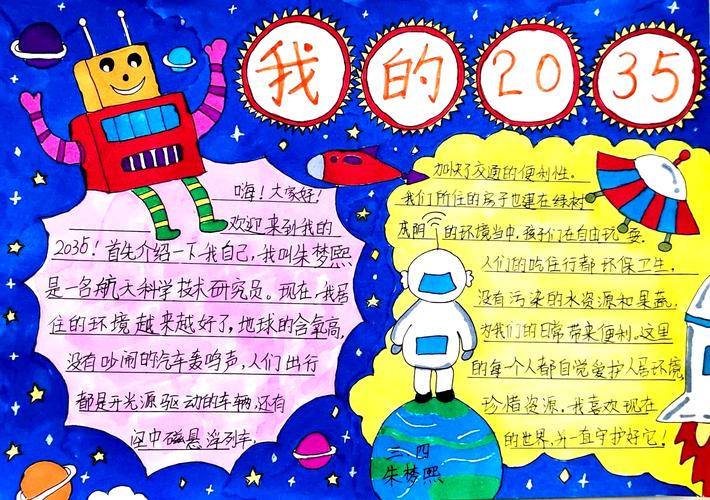 我的2035
嗨！大家好！
欢迎来到我的
2035！首先介绍一下我自己，我叫朱梦熙
是一名航天科学技术研究员。现在，我居
住的环境越来越好了，地球的含氧高，
没有吵闹的汽车轰鸣声，人们出行
都是开光源驱动的车辆，还有
空中磁悬浮列车，
加快了交通的便利性。
我们所住的房子也建在绿树
成阴的环境当中，孩子们在自由玩耍。
人们的吃住行都环保卫生，
没有污染的水资源和果蔬，
为我们的日常带来便利。这里
的每一个人都自觉爱护人居环境，
珍惜资源，我喜欢现在
的世界，并一直守护好它！
三.四
朱梦熙